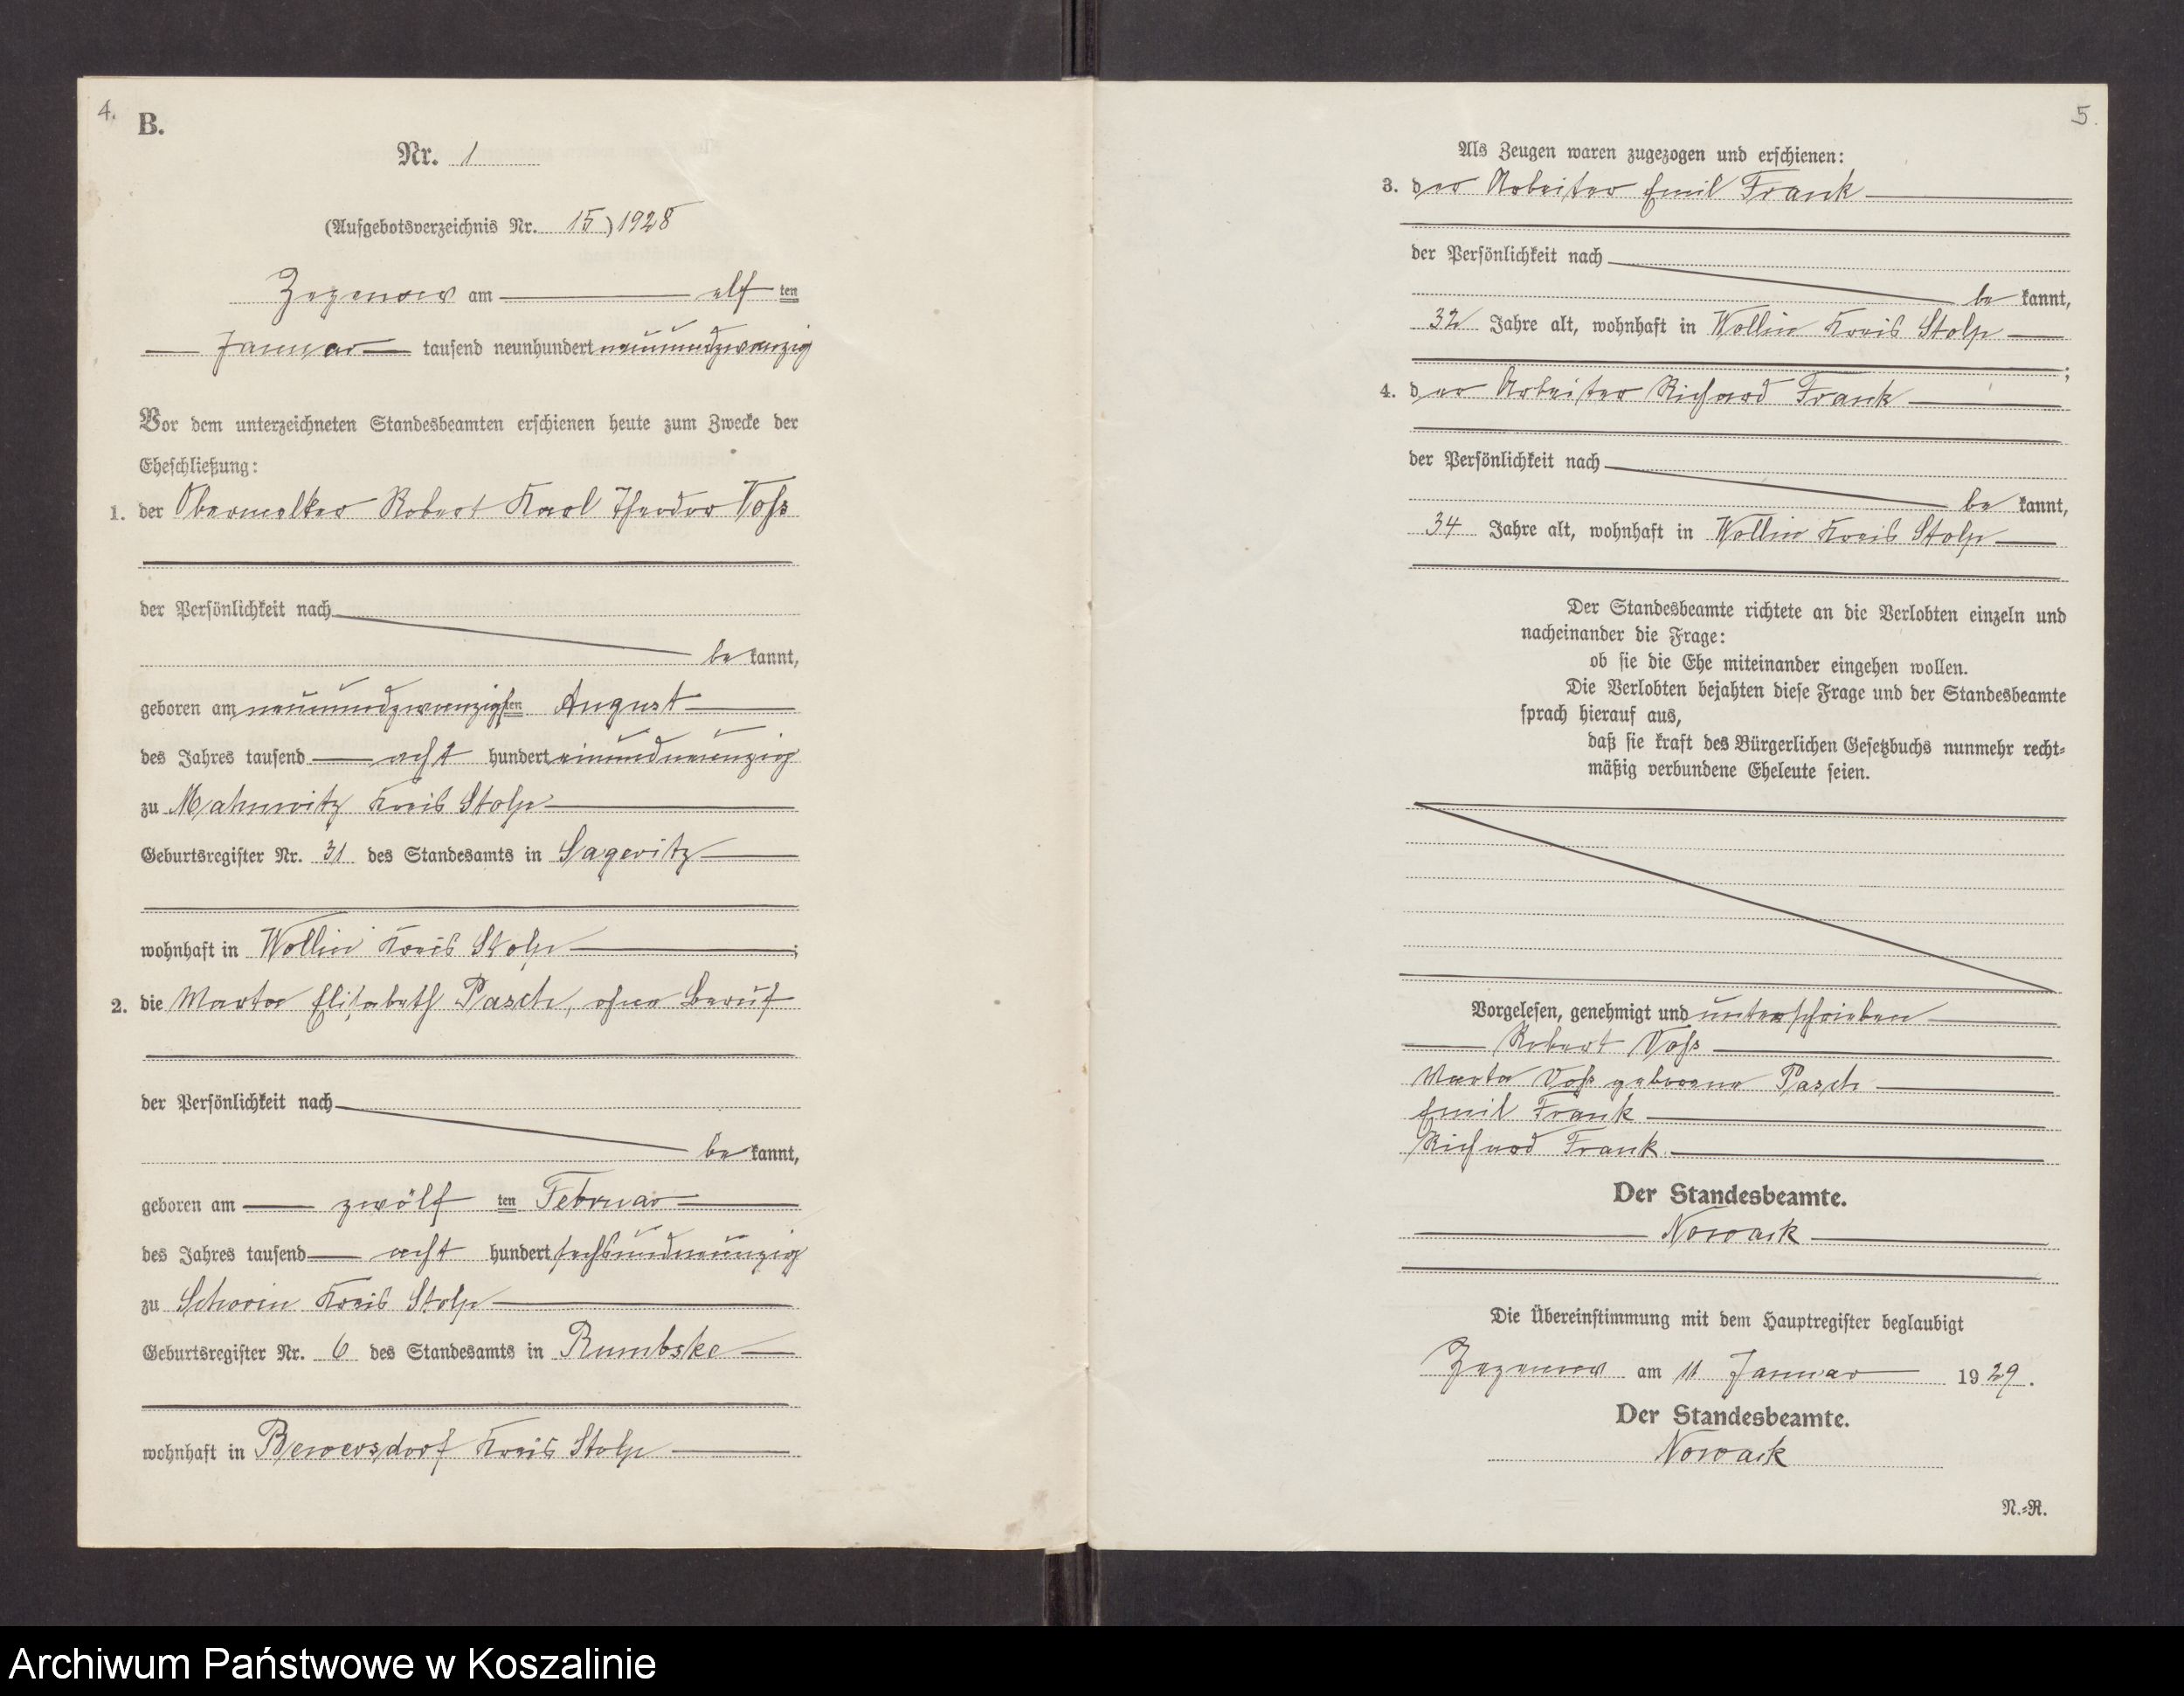 4.
B.
Nr. 1
(Aufgebotsverzeichnis Nr. 15) 1928
Zezenow am elf ten
Januar tausend neunhundert neunundzwanzig
Vor dem unterzeichneten Standesbeamten erschienen heute zum Zwecke der
Eheschließung:
1. der Obermelker Robert Karl Theodor Voß
der Persönlichkeit nach
be kannt,
geboren am neunundzwanzigsten August
des Jahres tausend acht hundert einundneunzig
zu Mahnwitz Kreis Stolp
Geburtsregister Nr. 31 des Standesamts in Sageritz
wohnhaft in Wollin Kreis Stolp ;
2. die Marta Elisabeth Pasch, ohne Beruf
der Persönlichkeit nach
be kannt,
geboren am zwölf ten Februar
des Jahres tausend acht hundert sechsundneunzig
zu Schorin Kreis Stolp
Geburtsregister Nr. 6 des Standesamts in Rumbske
wohnhaft in Bewersdorf Kreis Stolp
5.
Als Zeugen waren zugezogen und erschienen:
3. der Arbeiter Emil Frank
der Persönlichkeit nach
be kannt,
32 Jahre alt, wohnhaft in Wollin Kreis Stolp
;
4. der Arbeiter Richard Frank
der Persönlichkeit nach
be kannt,
34 Jahre alt, wohnhaft in Wollin Kreis Stolp
Der Standesbeamte richtete an die Verlobten einzeln und
nacheinander die Frage:
ob sie die Ehe miteinander eingehen wollen.
Die Verlobten bejahten diese Frage und der Standesbeamte
sprach hierauf aus,
daß sie kraft des Bürgerlichen Gesetzbuchs nunmehr recht-
mäßig verbundene Eheleute seien.
Vorgelesen, genehmigt und unterschrieben
Robert Voß
Marta Voß geborene Pasch
Emil Frank
Richard Frank
Der Standesbeamte.
Nowack
Die Übereinstimmung mit dem Hauptregister beglaubigt
Zezenow am 11 Januar 1929.
Der Standesbeamte.
Nowack
N.-R.
Archiwum Państwowe w Koszalinie